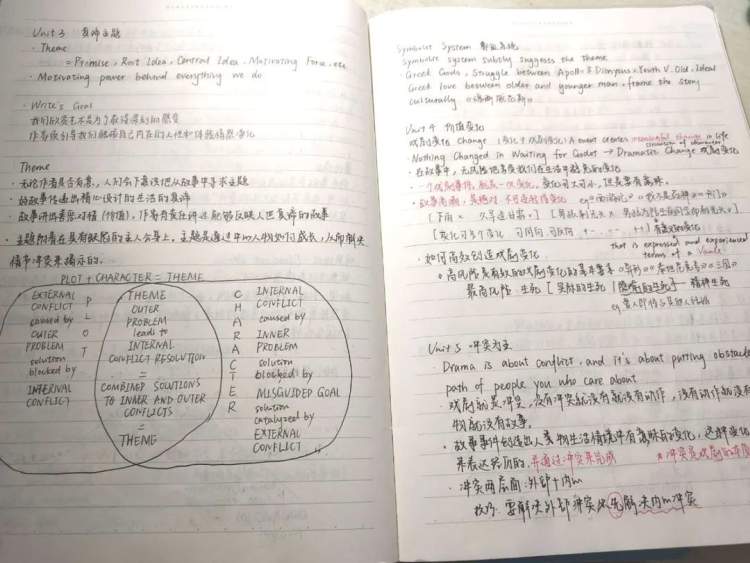 Unit 3 真师主题
· Theme
= Premise, Root Idea, Central Idea, Motivating Force, etc.
· Motivating power behind everything we do.
· Write's Goal
我们欣赏艺术不是为了获得得到的感受
作者须引导我们触碰自己内在的人性和体验情感变化
Theme
· 无论作者是否有意，人们会下意识地从故事中寻求主题
· 好故事传递出精心设计的生活的真谛
· 故事讲出善恶对错（价值），作者有责任讲述能够反映人世真谛的故事
· 主题附着在具有缺陷的主人公身上，主题是通过中心人物如何成长，从而解决
情节冲突来揭示的。
PLOT + CHARACTER = THEME
EXTERNAL
CONFLICT
caused by
OUTER
PROBLEM
solution
blocked by
INTERNAL
CONFLICT
PLOT
THEME
OUTER
PROBLEM
leads to
INTERNAL
CONFLICT RESOLUTION
=
COMBINED SOLUTIONS
TO INNER AND OUTER
CONFLICTS
=
THEME
CHARACTER
INTERNAL
CONFLICT
caused by
INNER
PROBLEM
solution
blocked by
MISGUIDED GOAL
solution
catalyzed by
EXTERNAL
CONFLICT
Symbolist System 象征系统
Symbolist system subtly suggests the theme
Greek Gods, Struggle between Apollo & Dionysus, Youth V. Old, Ideal
Greek love between older and younger man, frame the story
culturally
Unit 4 价值变化
戏剧变化 Change (变化+戏剧性) A event creates meaningful change in life
situation of character
· Nothing Changed in Waiting for Godot → Dramatic Change 戏剧变化
· 在故事中，无风险地享受我们在生活中避免的变化
· 一个戏剧事件，就是一次变化，变化可大可小，但是要有意味。
· 故事有两极绝对，不可逆的价值变化 《我不是药神》
有意义的变化
that is expressed and experienced
terms of a Value
· 如何高效创造戏剧变化
· 高风险是有效的戏剧变化的基本要素
最高风险：生死 [ 实际的生死 / 隐喻的生死 ] 精神生死
Unit 5 冲突为主
· Drama is about conflict, and it's about putting obstacles
path of people you who care about
· 戏剧就是冲突，没有冲突就没有动作，没有动作就没有
物就没有故事。
· 故事事件创造出人类物生活情境中有意味的变化，这种变化
来表达经历的，并通过冲突来完成 * 冲突是戏剧的本质
· 冲突两层面：外部+内心
技巧：要解决外部冲突必先解决内心冲突